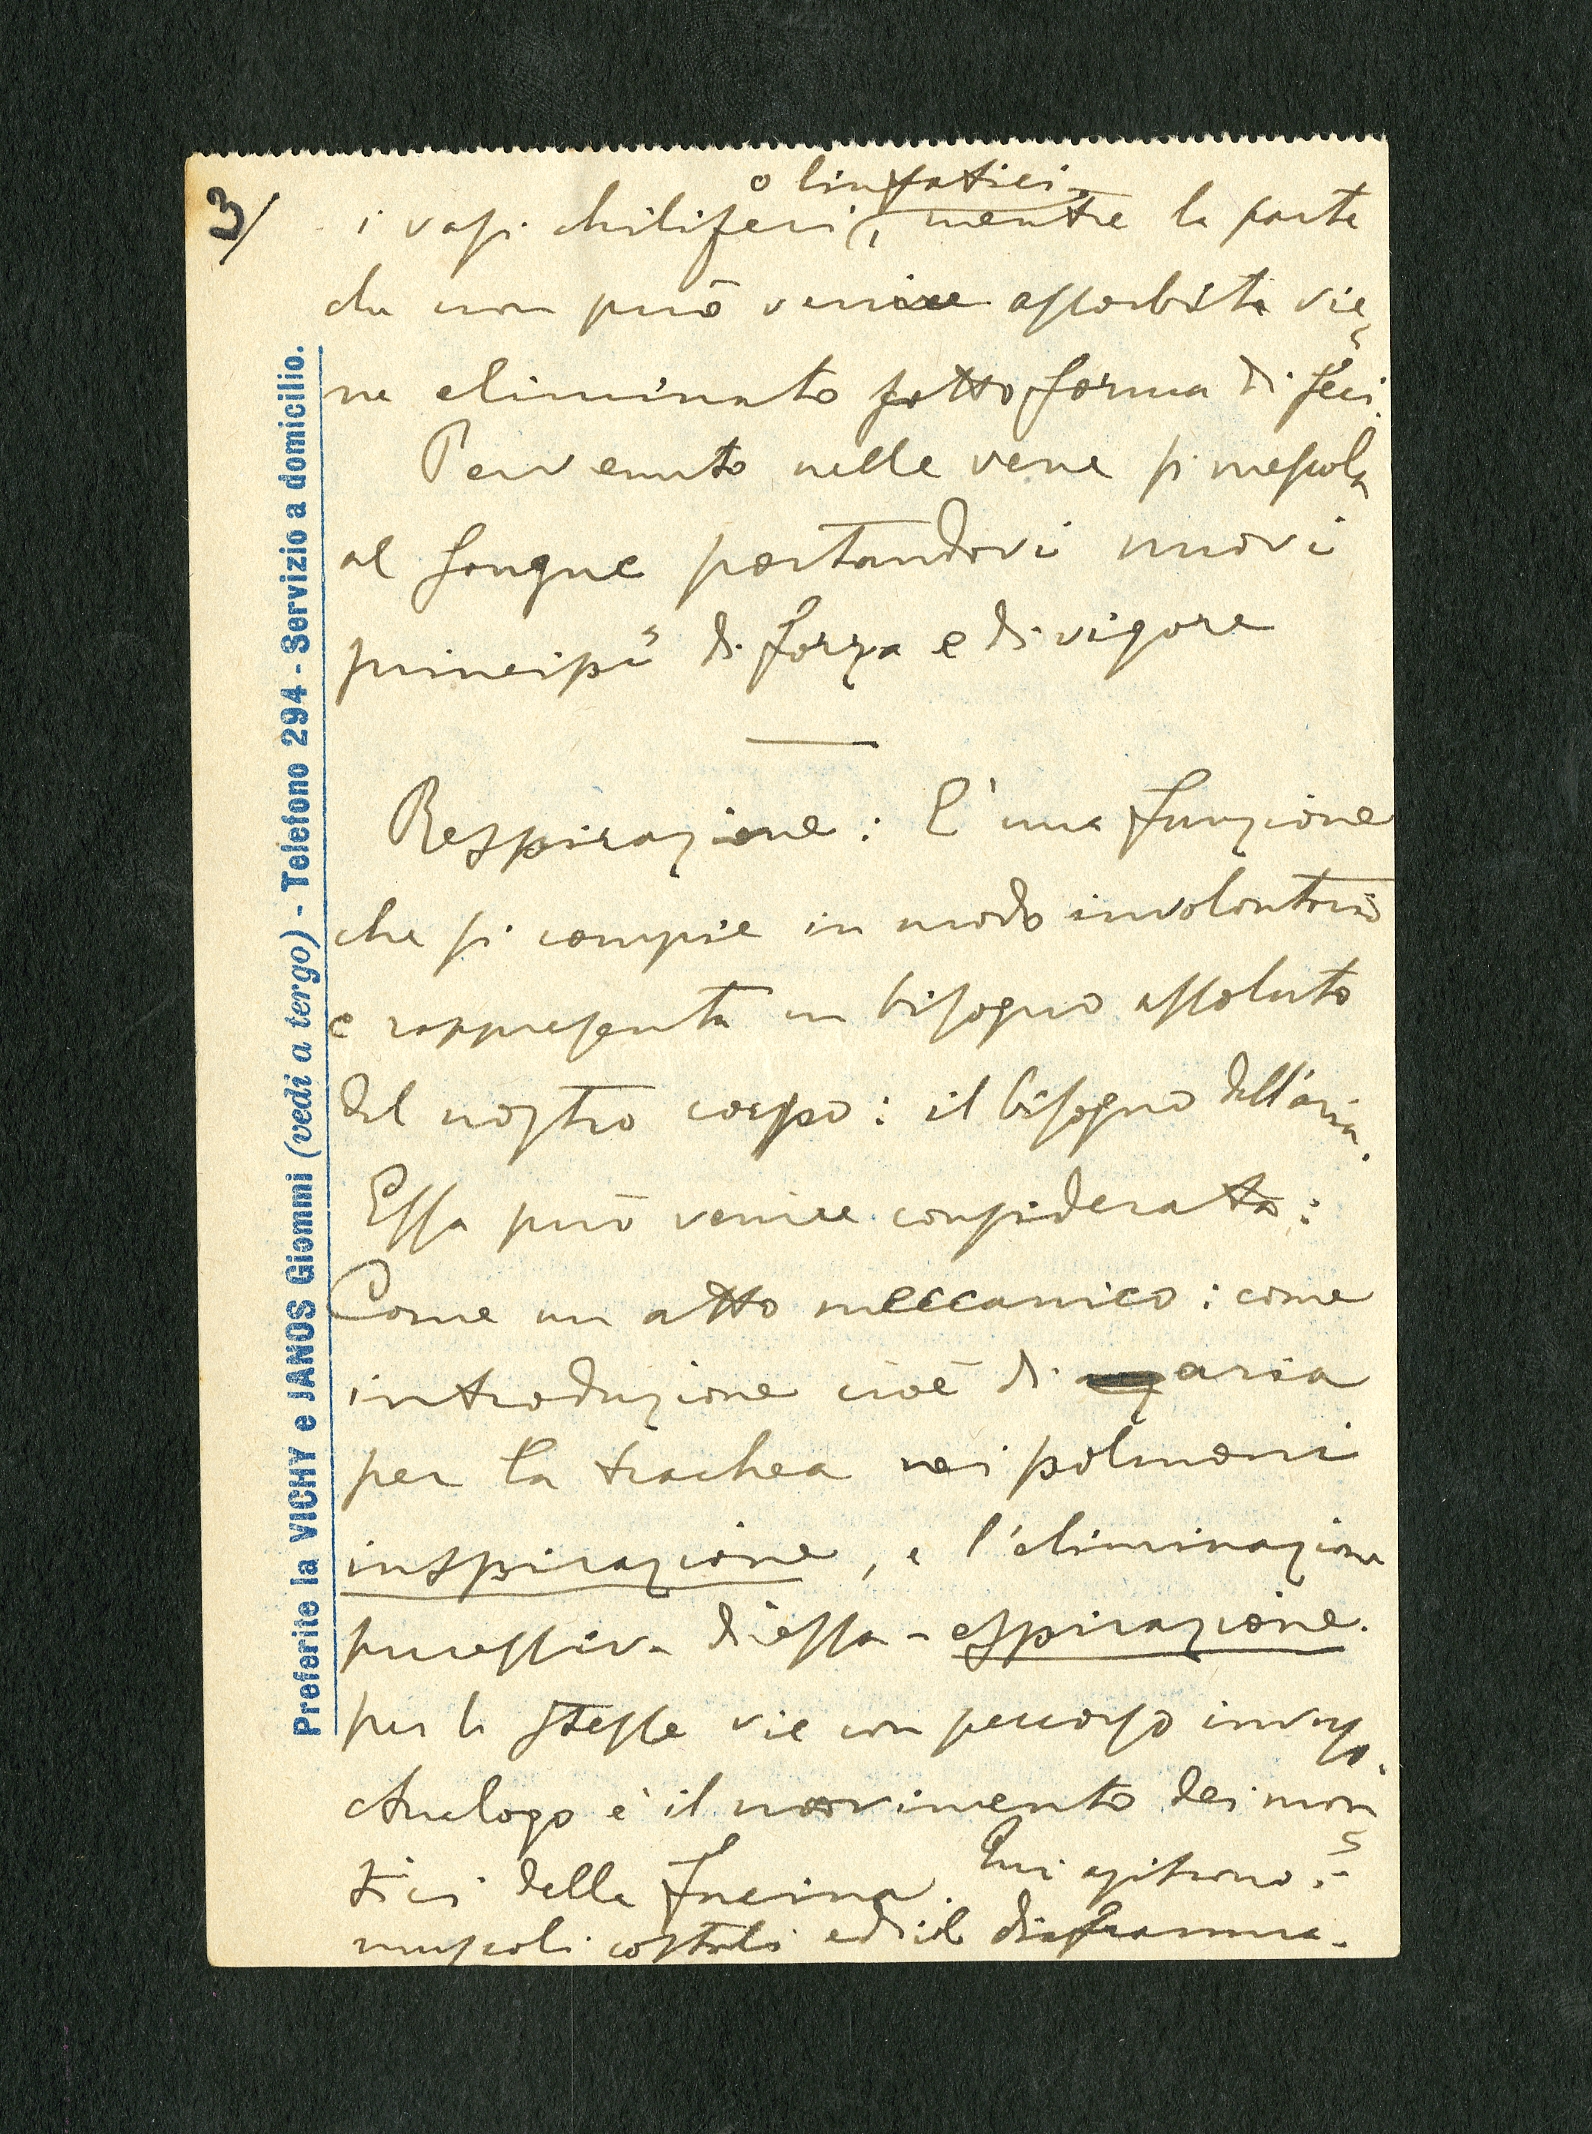 3/
o linfatici
i vasi chiliferi, mentre la parte
che non può venire assorbita vie
ne eliminato sotto forma di feci.
Pervenuto nelle vene si mescola
al sangue portandovi nuovi
principi di forza e di vigore
Respirazione: È una funzione
che si compie in modo involontario
e rappresenta un bisogno assoluto
del nostro corpo: il bisogno dell'aria.
Essa può venire considerata:
Come un atto meccanico: come
introduzione cioè di aria
per la trachea nei polmoni
inspirazione, e l'eliminazione
successiva di essa - espirazione.
per le stesse vie con percorso inverso.
Analogo è il movimento dei man
tici della fucina. Qui agiscono i
muscoli costali ed il diaframma.
Preferite la VICHY e JANOS Giommi (vedi a tergo) - Telefono 294 - Servizio a domicilio.